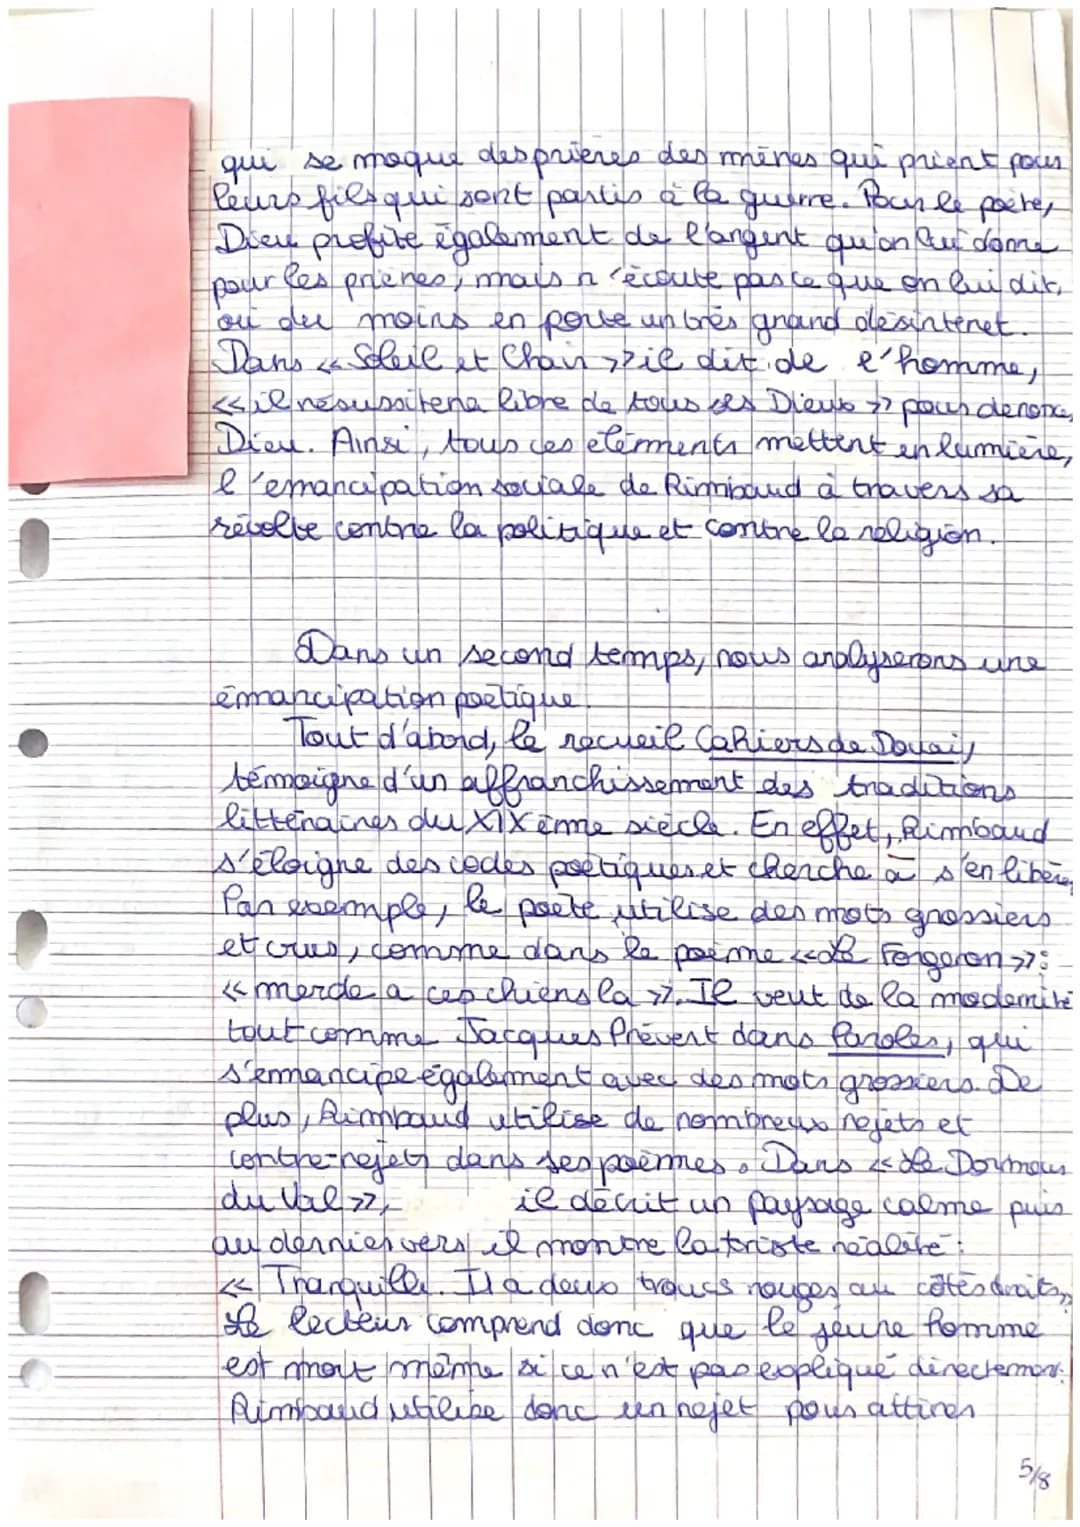 qui se moque des prières des mères qui prient pour
leurs fils qui sont partis à la guerre. Pour le poète,
Dieu profite également de l'argent qu'on lui donne
pour les prières, mais n'écoute pas ce que on lui dit,
ou du moins en porte un très grand désinteret.
Dans « Soleil et Chair » il dit de l'homme,
« il resussitera libre de tous ses Dieux » pour denonce
Dieu. Ainsi, tous ces éléments mettent en lumière,
l'émancipation sociale de Rimbaud à travers sa
révolte contre la politique et contre la religion.
Dans un second temps, nous analyserons une
émancipation poétique.
Tout d'abord, le recueil Cahiers de Douai,
témoigne d'un affranchissement des traditions
littéraires du XIXème siècle. En effet, Rimbaud
s'éloigne des codes poétiques et cherche à s'en libérer
Par exemple, le poète utilise des mots grossiers
et crus, comme dans le poème « Le Forgeron » :
« merde a ces chiens la ». Il veut de la modernité
tout comme Jacques Prévert dans Paroles, qui
s'émancipe également avec des mots grossiers. De
plus, Rimbaud utilise de nombreux rejets et
contre-rejets dans ses poèmes. Dans « Le Dormeur
du Val », il décrit un paysage calme puis
au dernier vers il montre la triste réalité :
« Tranquille. Il a deux trous rouges au côtés droits »
Le lecteur comprend donc que le jeune homme
est mort même si ce n'est pas expliqué directement.
Rimbaud utilise donc un rejet pour attirer
5/8